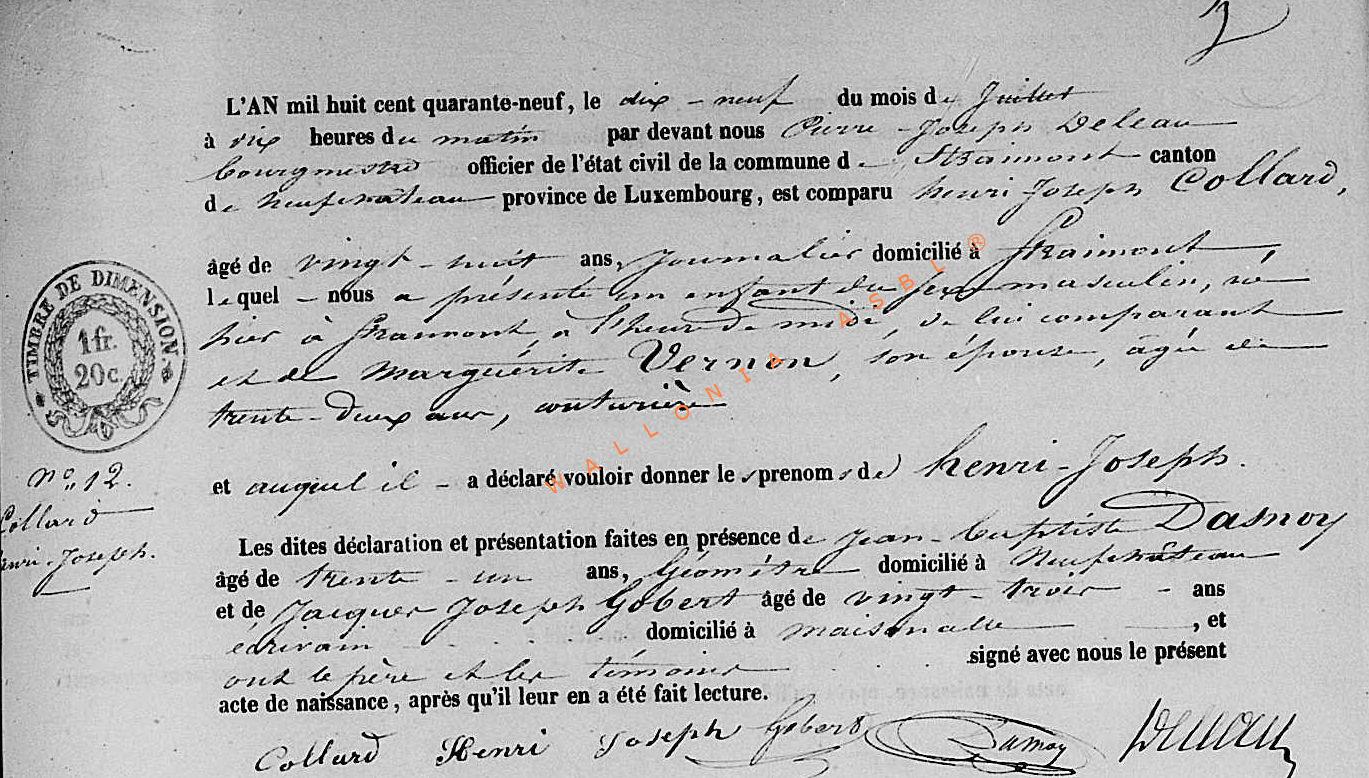 2
L'AN mil huit cent quarante-neuf, le dix-neuf du mois de Juillet
à dix heures du matin par devant nous Pierre-Joseph Deleau
bourgmestre officier de l'état civil de la commune de Straimont canton
de Neufchateau province de Luxembourg, est comparu henri Joseph Collard,
âgé de vingt-huit ans, Journalier domicilié à Straimont,
lequel - nous a présenté un enfant du sexe masculin, né
hier à Straimont, à l'heure de midi, de lui comparant
et de Marguérite Vernon, son épouse, âgée de
trente-deux ans, couturière
et auquel il - a déclaré vouloir donner les prenoms de henri-Joseph.
Les dites déclaration et présentation faites en présence de Jean-baptiste Dasnoy
âgé de trente-un ans, Géomètre domicilié à Neufchâteau
et de Jacques Joseph Gobert âgé de vingt-trois - ans
écrivain domicilié à maisoncelle, et
ont le père et les témoins signé avec nous le présent
acte de naissance, après qu'il leur en a été fait lecture.
Collard Henri Joseph Gobert Dasnoy Deleau
TIMBRE DE DIMENSION.
1 fr.
20 c.
N° 12.
Collard
henri-Joseph.
WALLONIA ASBL ®